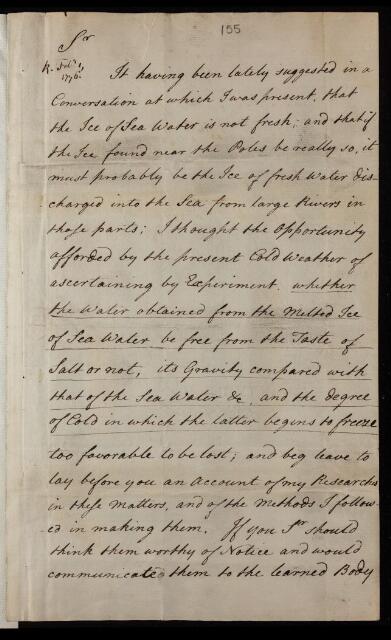 155
Sr
R. Feb. 1,
1776.
It having been lately suggested in a
Conversation at which I was present, that
the Ice of Sea Water is not fresh; and that if
the Ice found near the Poles be really so, it
must probably be the Ice of fresh Water dis-
charged into the Sea from large Rivers in
those parts; I thought the Opportunity
afforded by the present Cold Weather of
ascertaining by Experiment, whether
the Water obtained from the Melted Ice
of Sea Water be free from the Taste of
Salt or not, its Gravity compared with
that of the Sea Water &c, and the degree
of Cold in which the latter begins to freeze
too favorable to be lost; and beg leave to
lay before you an Account of my Researches
in these Matters, and of the Methods I follow-
-ed in making them. If you Sr should
think them worthy of Notice and would
communicate them to the learned Body